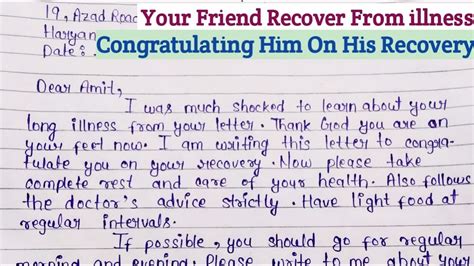 19, Azad Road
Your Friend Recover From illness
Haryan
Congratulating Him On His Recovery
Date :
Dear Amit,
I was much shocked to learn about your
long illness from your letter. Thank God you are on
your feet now. I am writing this letter to congra-
tulate you on your recovery. Now please take
complete rest and care of your health. Also follows
the doctor's advice strictly. Have light food at
regular intervals.
If possible, you should go for regular
morning and evening. Please write to me about your